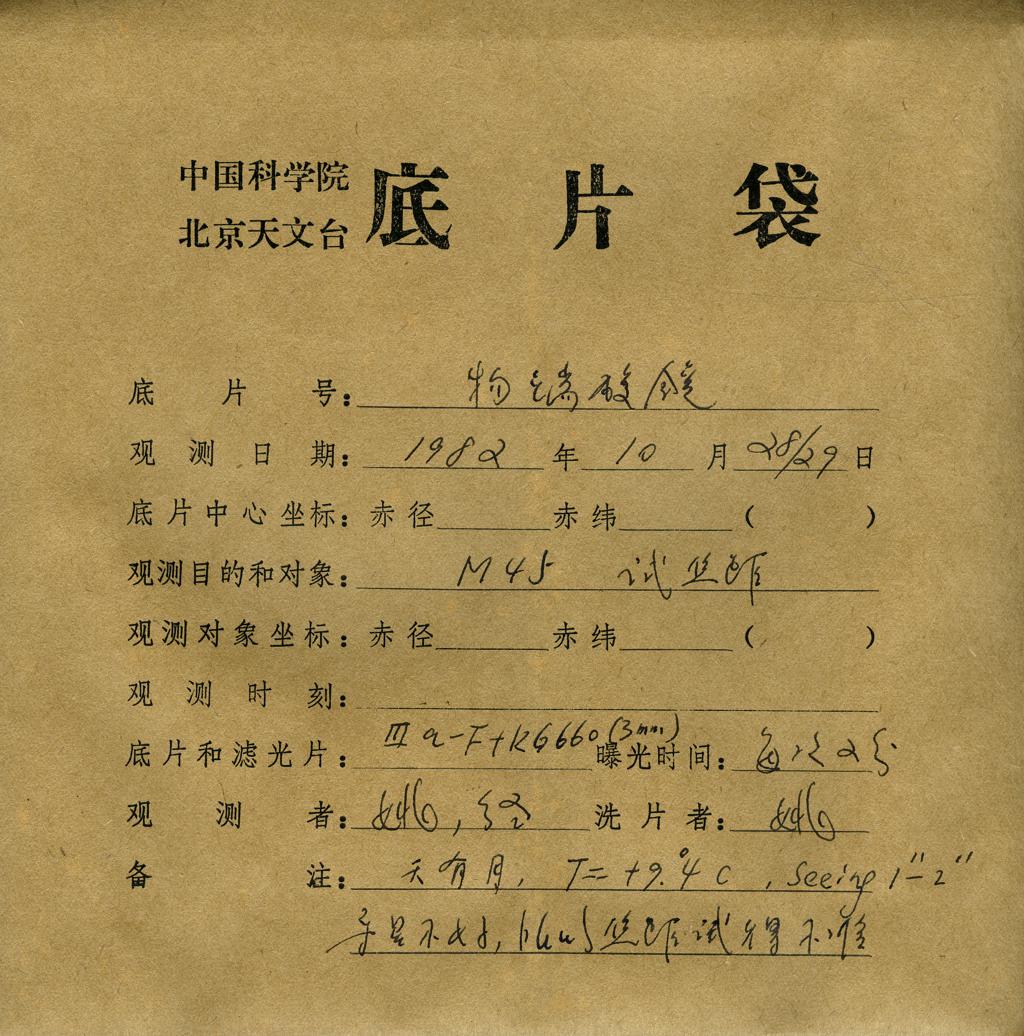 中国科学院
北京天文台 底片袋
底片号：物端棱镜
观测日期：1982年10月28/29日
底片中心坐标：赤径 赤纬 ( )
观测目的和对象：M45 试焦距
观测对象坐标：赤径 赤纬 ( )
观测时刻：
底片和滤光片：IIIa-F+RG660(3mm) 曝光时间：每次2分
观测者：姚, 洗片者：姚
备注：天有月, T=+9.°4C, Seeing 1"-2"
星不好, 焦距试得不准